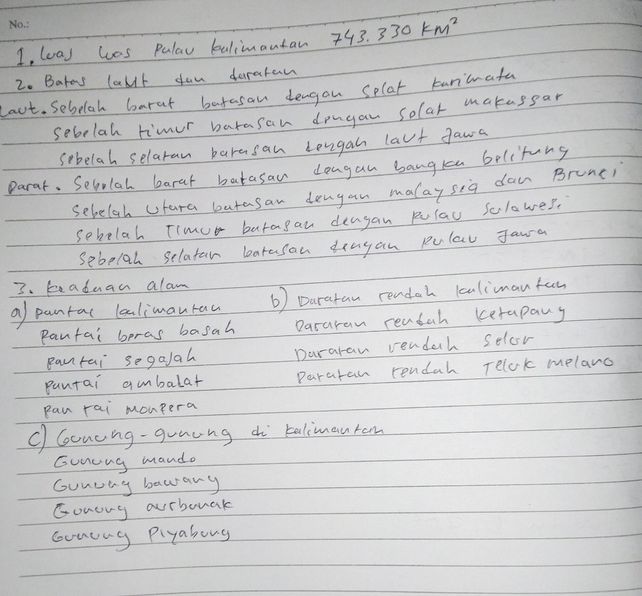 No.:
1. luas luas Pulau kalimantan 743.330 KM²
2. Batas laut dan daratan
Laut. Sebelah barat batasan dengan Selat karimata
Sebelah timur batasan dengan Selat makassar
Sebelah selatan batasan dengan laut Jawa
Darat. Sebelah barat batasan dengan bangka belitung
Sebelah Utara batasan dengan malaysia dan Brunei
Sebelah Timur batasan dengan Pulau Sulawesi
Sebelah selatan batasan dengan Pulau Jawa
3. Keaduan alam
a) pantai kalimantan
Pantai beras basah
Pantai segajah
Pantai ambalat
Pantai monpera
b) Daratan rendah kalimantan
Daratan rendah Ketapang
Daratan rendah Selor
Daratan rendah Teluk melano
c) Gunung-gunung di kalimantan
Gunung mando
Gunung bawang
Gunung ourbunak
Gunung Piyabung